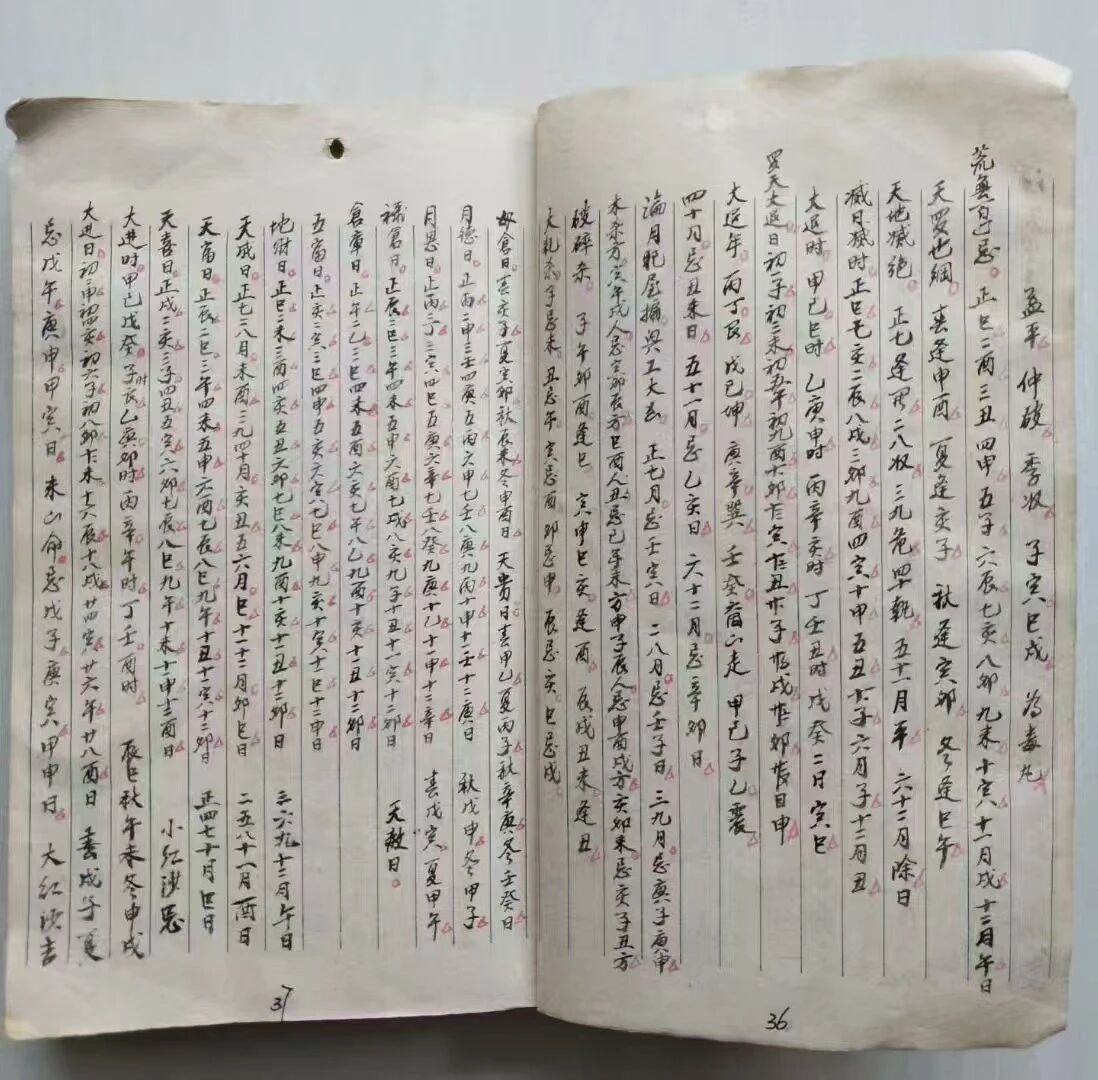 孟平 仲破 季收 子寅巳戌 为毒九
荒芜日忌 正巳二酉三丑四申五子六辰七亥八卯九未十寅十一月戌十二月午日
天罗也網 春逢申酉 夏逢亥子 秋逢寅卯 冬逢巳午
天地滅絕 正七逢开二八收 三九危四十執 五十一月平 六十二月除日
滅日滅时 正巳七亥二辰八戌三卯九酉四寅十申五丑十一子六月子十二月丑
大退时 甲己巳时 乙庚申时 丙辛亥时 丁壬丑时 戊癸二日寅巳
罗天大退日初一子初三未初五午初九酉十一卯十三寅十五丑廿一子
大退年 丙丁艮 戊己坤 庚辛巽 壬癸 山走 甲己子乙震
四十月忌丑未日 五十一月忌乙亥日 六十二月忌辛卯日
論月 正七月忌壬寅日 二八月忌壬子日 三九月忌庚子庚申
未杀方寅午戌人忌寅卯辰方巳酉人丑忌巳午未方申子辰人忌申酉戌方亥卯未忌亥子丑方
破碎杀 子午卯酉逢巳 寅申巳亥逢酉 辰戌丑未逢丑
大礼杀子忌未 丑忌午 寅忌酉 卯忌申 辰忌亥 巳忌戌
36
母倉日 春亥子夏寅卯秋辰未冬申酉日 天貴日春甲乙夏丙子秋辛庚冬壬癸日
月德日 正丙二甲三壬四庚五丙六甲七壬八庚九丙十甲十一壬十二庚日 秋戊申冬甲子
月恩日 正丙二丁三寅四巳五庚六辛七壬癸九庚十乙十一甲十二辛日 春戊寅夏甲午
禄倉日 正辰二巳三年四未五申六酉七戌八亥九子十丑十一寅十二卯日 天赦日
倉庫日 正午二乙三巳四未五酉六亥七午八乙九酉十亥十一丑十二卯日
五富日 正亥二寅三巳四申五亥六寅七巳八申九亥十寅十一巳十二申日
地財日 正巳二未三酉四亥五丑六卯七巳八未九酉十亥十一丑十二卯日 三六九十二月午日
天成日 正七二八月未酉三九四十月亥丑五六月巳十一十二月卯巳日 二五八十一月酉日
天富日 正辰二巳三年四未五申六酉七辰八巳九年十丑十一寅十二卯日 正四七十月巳日
天喜日正戌二亥三子四丑五寅六卯七辰八巳九午十未十一申十二酉日 小红沙忌
大进时甲己戊癸子时辰乙庚卯时丙辛午时丁壬酉时 辰巳秋午未冬申戌
大进日初二申初四亥初六子初八卯十三未十六辰十八戌廿四寅廿六午廿八酉日 春戌子夏
忌戊午庚申甲寅日 未山 忌戊子庚寅甲申日 大红沙吉
37